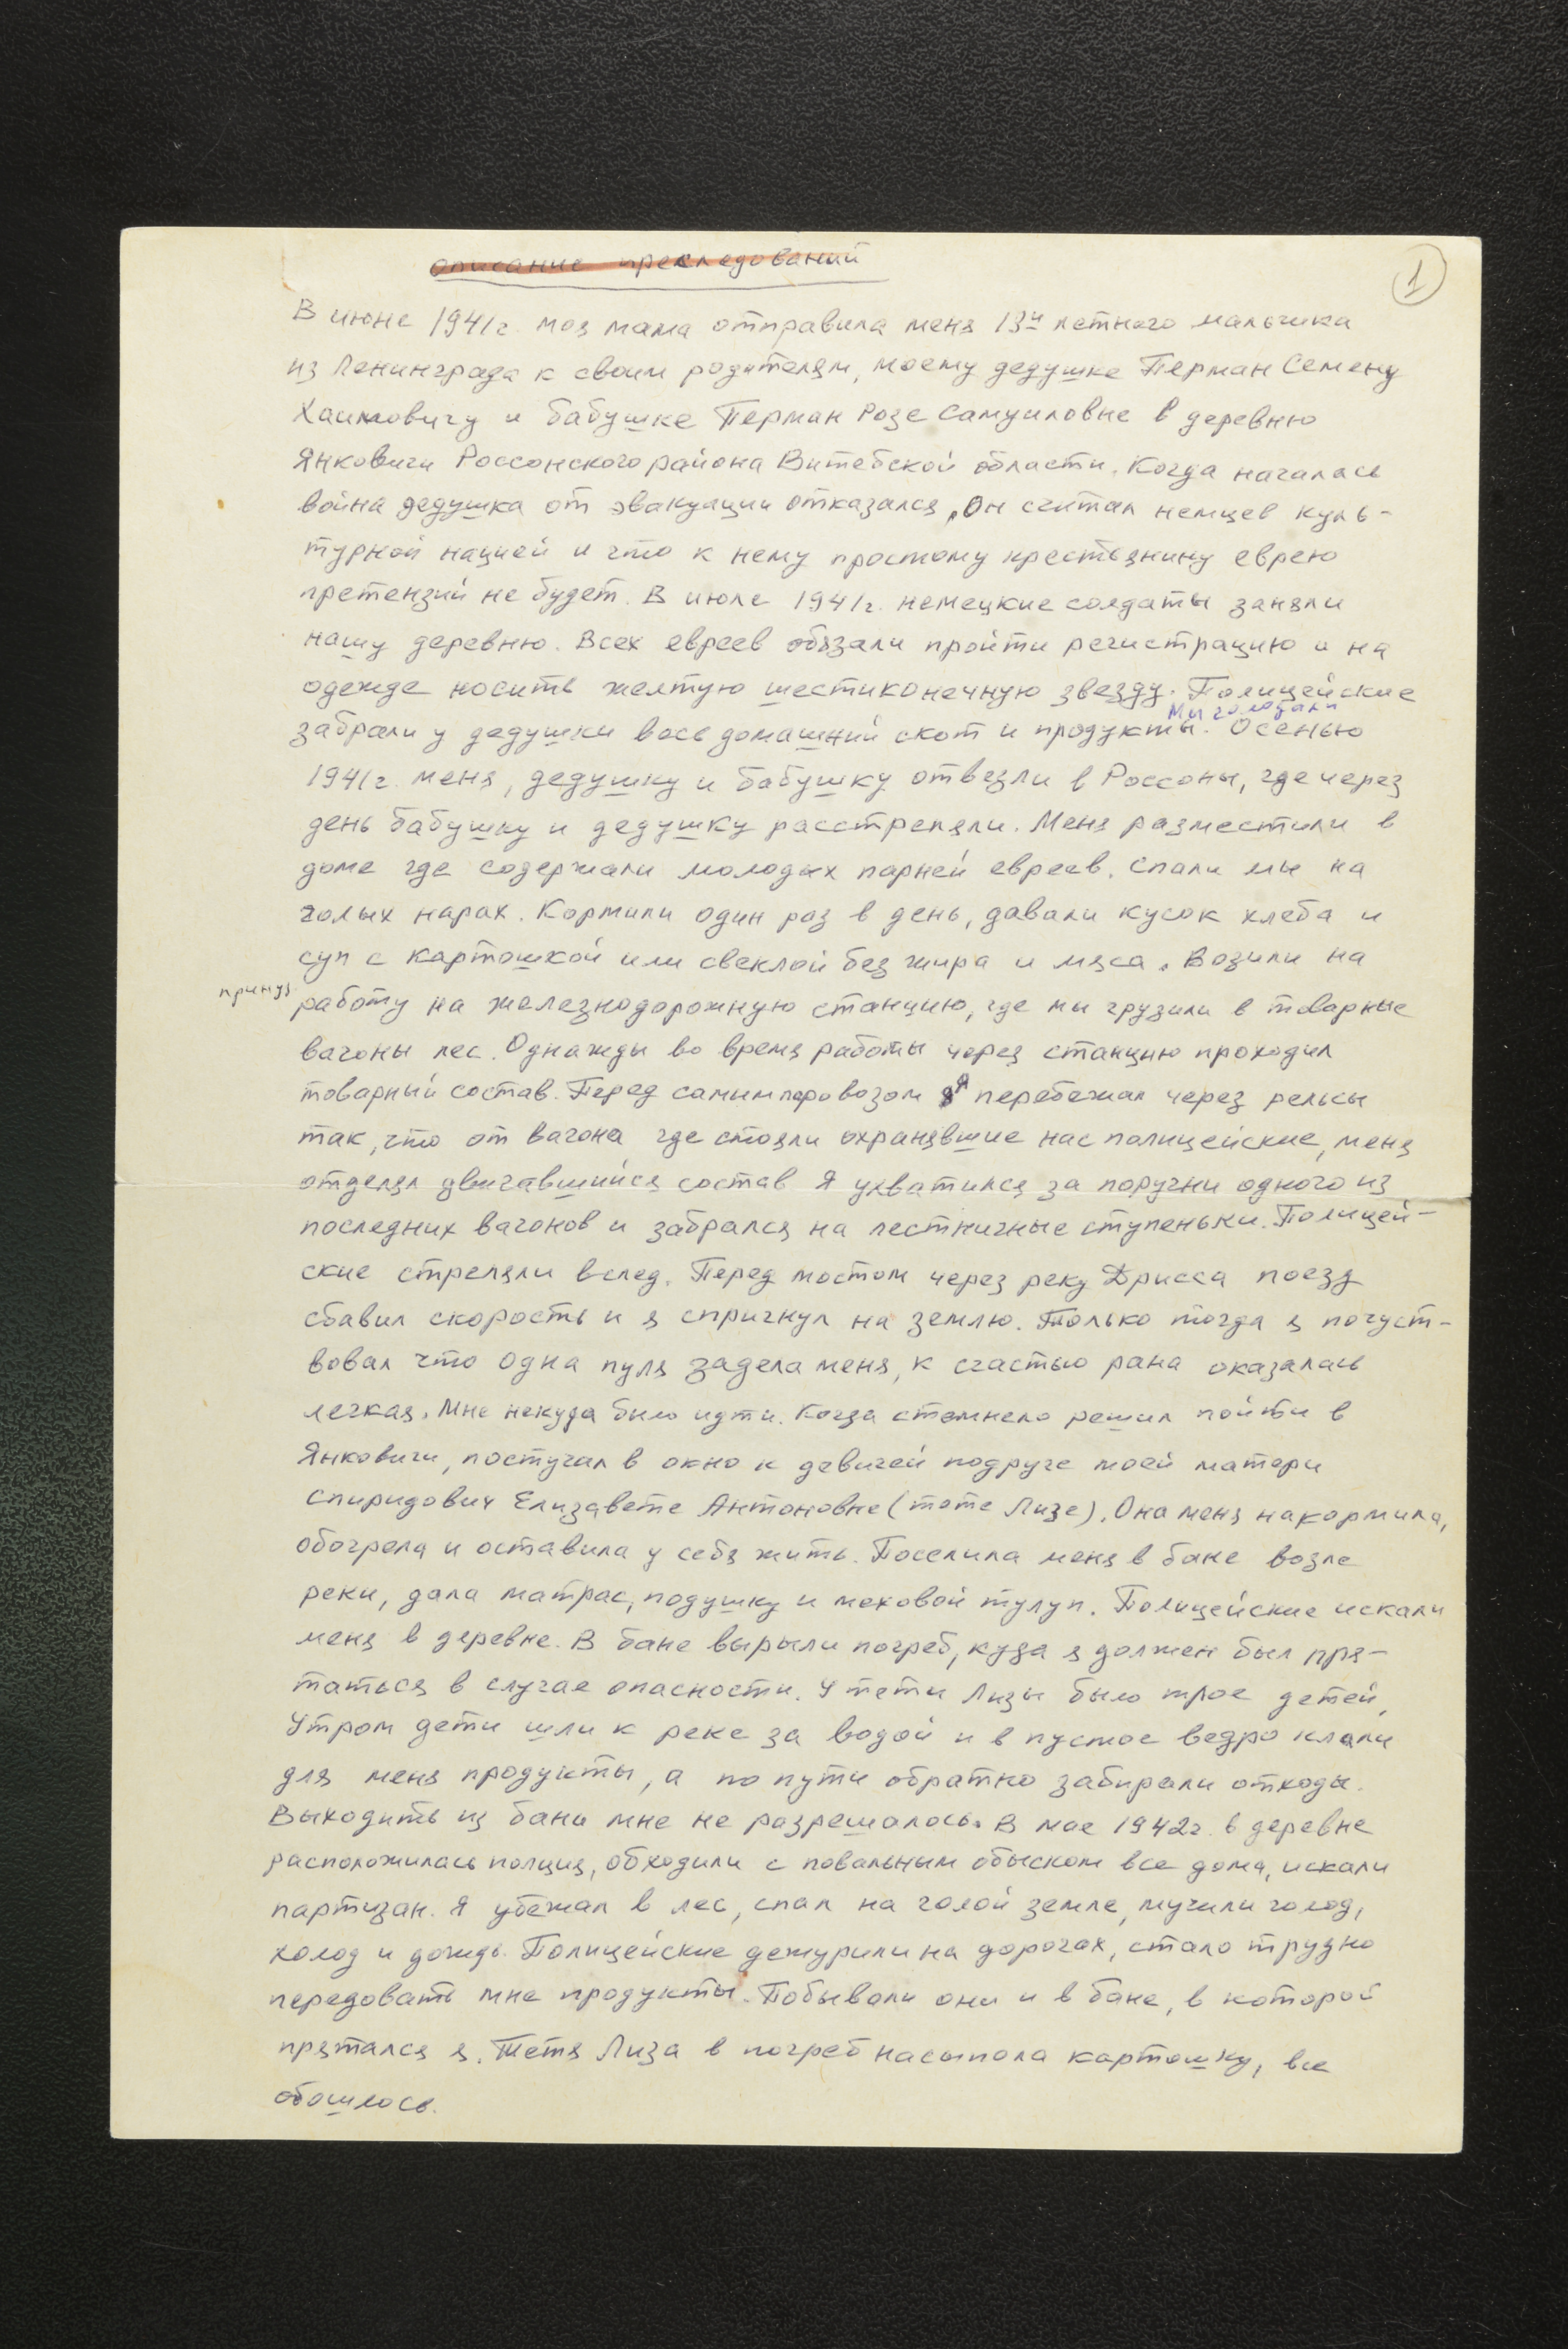 описание преследований
1
В июне 1941г. моя мама отправила меня 13и летнего мальчика
из Ленинграда к своим родителям, моему дедушке Перман Семену
Хаимовичу и бабушке Перман Розе Самуиловне в деревню
Янковичи Россонского района Витебской области. Когда началась
война дедушка от эвакуации отказался, Он считал немцев куль-
турной нацией и что к нему простому крестьянину еврею
претензий не будет. В июле 1941г. немецкие солдаты заняли
нашу деревню. Всех евреев обязали пройти регистрацию и на
одежде носить желтую шестиконечную звезду. Полицейские
Мы голодали
забрали у дедушки весь домашний скот и продукты. Осенью
1941г. меня, дедушку и бабушку отвезли в Россоны, где через
день бабушку и дедушку расстреляли. Меня разместили в
доме где содержали молодых парней евреев. Спали мы на
голых нарах. Кормили один раз в день, давали кусок хлеба и
суп с картошкой или свеклой без жира и мяса. Возили на
принуд.
работу на железнодорожную станцию, где мы грузили в товарные
вагоны лес. Однажды во время работы через станцию проходил
товарный состав. Перед самим паровозом я перебежал через рельсы
так, что от вагона где стояли охранявшие нас полицейские, меня
отделял двигавшийся состав Я ухватился за поручни одного из
последних вагонов и забрался на лестничные ступеньки. Полицей-
ские стреляли вслед. Перед мостом через реку Дрисса поезд
сбавил скорость и я спригнул на землю. Только тогда я почуст-
вовал что одна пуля задела меня, к счастью рана оказалась
легкая. Мне некуда было идти. Когда стемнело решил пойти в
Янковичи, постучал в окно к девичей подруге моей матери
Спиридович Елизавете Антоновне (тете Лизе). Она меня накормила,
обогрела и оставила у себя жить. Поселила меня в бане возле
реки, дала матрас, подушку и меховой тулуп. Полицейские искали
меня в деревне. В бане вырыли погреб, куда я должен был пря-
таться в случае опасности. У тети Лизы было трое детей,
Утром дети шли к реке за водой и в пустое ведро клали
для меня продукты, а по пути обратно забирали отходы.
Выходить из бани мне не разрешалось. В мае 1942г. в деревне
расположилась полиция, обходили с повальным обыском все дома, искали
партизан. Я убежал в лес, спал на голой земле, мучили голод,
холод и дождь. Полицейские дежурили на дорогах, стало трудно
передовать мне продукты. Побывали они и в бане, в которой
прятался я. Тетя Лиза в погреб насыпала картошку, все
обошлось.